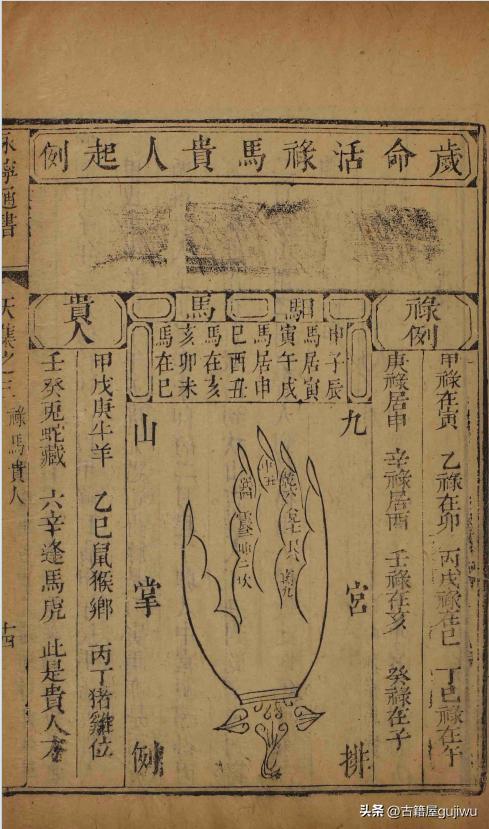 歲命活祿馬貴人起例
祿例
甲祿在寅 乙祿在卯 丙戊祿在巳 丁己祿在午
庚祿居申 辛祿居酉 壬祿在亥 癸祿在子
馹馬
申子辰
馬居寅
寅午戌
馬居申
巳酉丑
馬在亥
亥卯未
馬在巳
九宮排
山掌例
兌七艮八
中五
震三坤二坎
貴人
甲戊庚牛羊 乙己鼠猴鄉 丙丁猪雞位
壬癸兎蛇藏 六辛逢馬虎 此是貴人方
永寧通書
天集之三 祿馬貴人 十四
头条 @古籍屋gujiwu